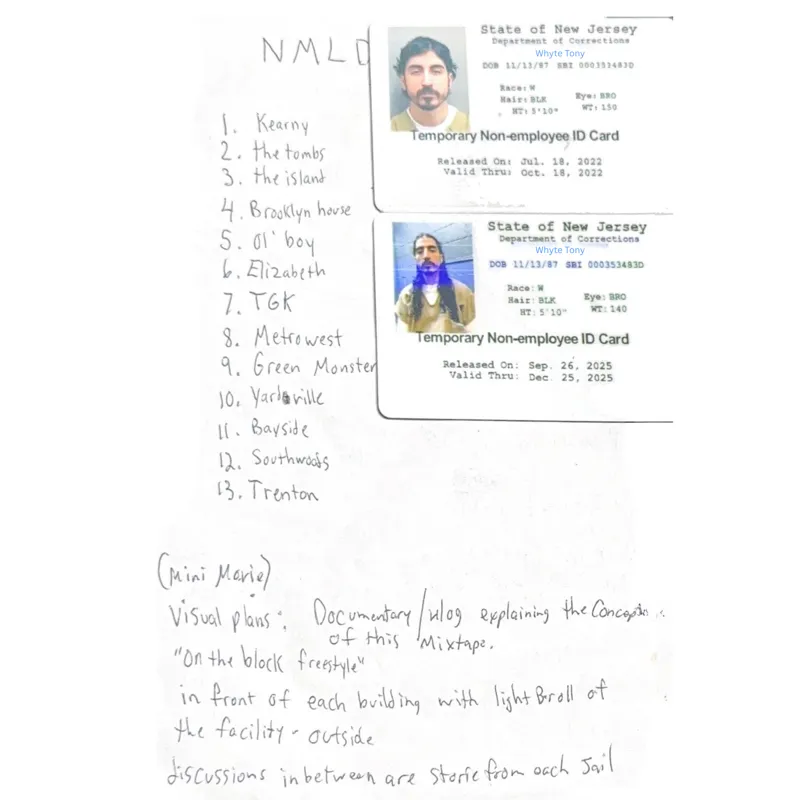 NMLD
1. Kearny
2. the tombs
3. the island
4. Brooklyn house
5. Ol' boy
6. Elizabeth
7. TGK
8. Metrowest
9. Green Monster
10. Yardville
11. Bayside
12. Southwoods
13. Trenton
State of New Jersey
Department of Corrections
Whyte Tony
DOB 11/13/87 SBI 000353483D
Race: W
Hair: BLK Eye: BRO
HT: 5'10" WT: 150
Temporary Non-employee ID Card
Released On: Jul. 18, 2022
Valid Thru: Oct. 18, 2022
State of New Jersey
Department of Corrections
Whyte Tony
DOB 11/13/87 SBI 000353483D
Race: W
Hair: BLK Eye: BRO
HT: 5'10" WT: 140
Temporary Non-employee ID Card
Released On: Sep. 26, 2025
Valid Thru: Dec. 25, 2025
(Mini Movie)
Visual plans: Documentary/vlog explaining the
of this Mixtape.
"On the block freestyle"
in front of each building with light Broll of
the facility - outside
discussions inbetween are from each Jail